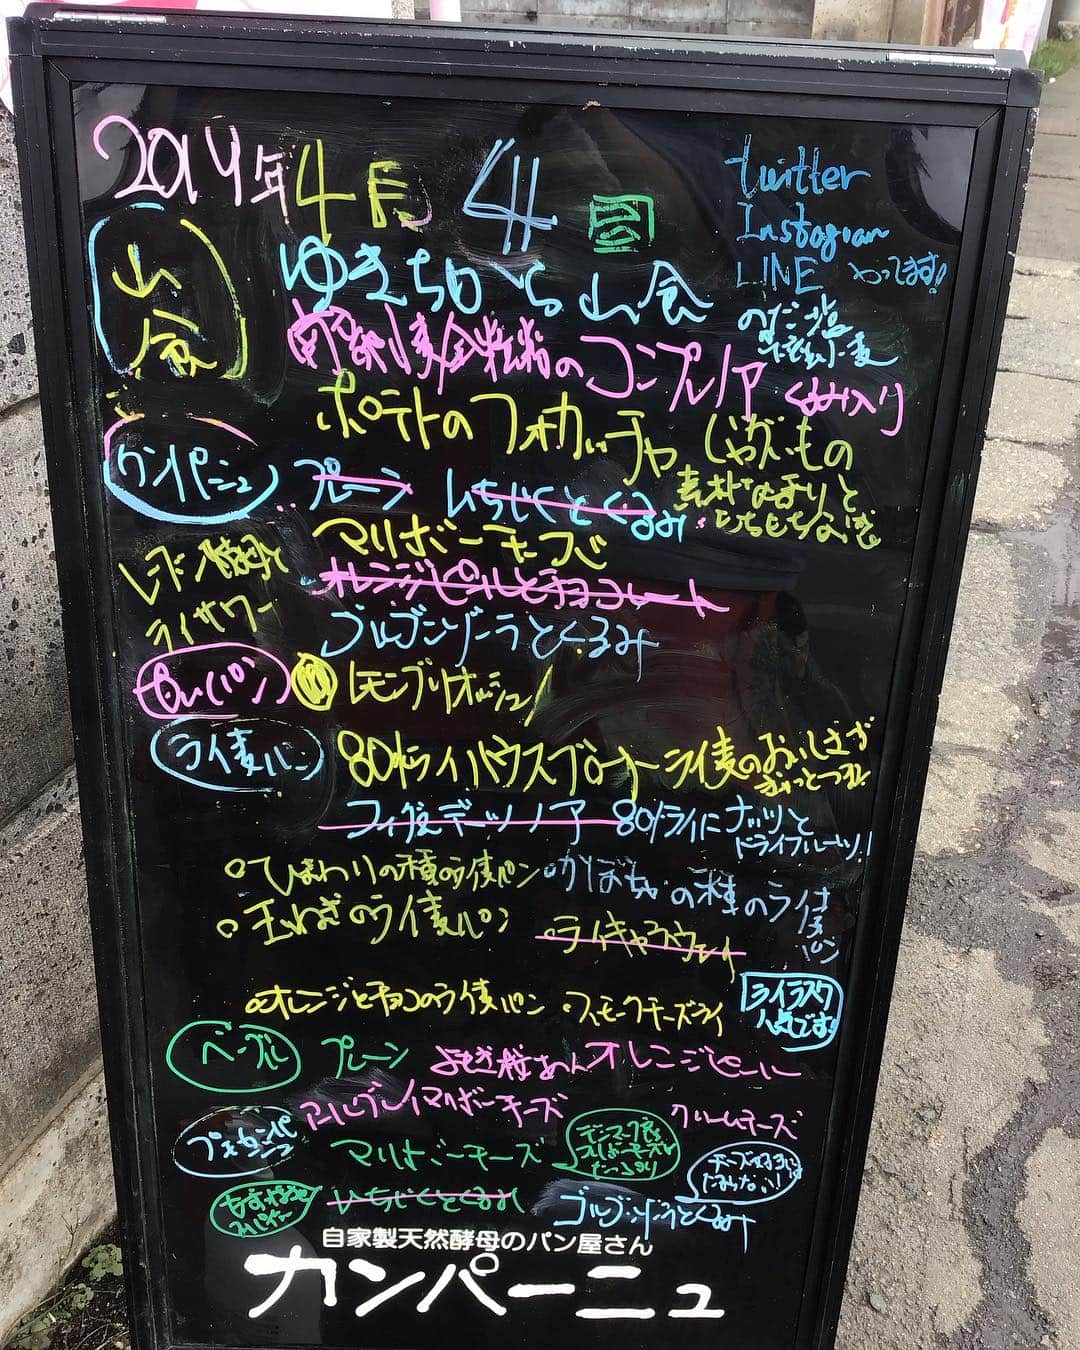 2019年 4月 4日
twitter
Instagram
LINE やってます!!
山食
ゆきちから山食
全粒粉のコンプレノア くるみ入り
ポテトのフォカッチャ じゃがいもの
素朴な香りと
もちもちかな
カンパーニュ プレーン いちじくとくるみ
マリボーチーズ
レーズン酵母と
ライサワー
オレンジピールとチョコレート
ゴルゴンゾーラとくるみ
レモンブリオッシュ
ライ麦パン 80%ライハウスブロート ライ麦のおいしさず
ぎゅっとつまり
フィグデーツノア 80%ライにナッツと
ドライフルーツ!!
○ひまわりの種のライ麦パン ○かぼちゃの種のライ麦パン
○玉ねぎのライ麦パン ○ライキャラウェイ
○オレンジとチョコのライ麦パン ○スモークチーズライ
ライラスク
人気です!
ベーグル プレーン よもぎ粒あん オレンジピール
マリボーチーズ クリームチーズ
プチカンパーニュ マリボーチーズ
チーズ好きには
たまらない!
いちじくとくるみ
ゴルゴンゾーラとくるみ
自家製天然酵母のパン屋さん
カンパーニュ